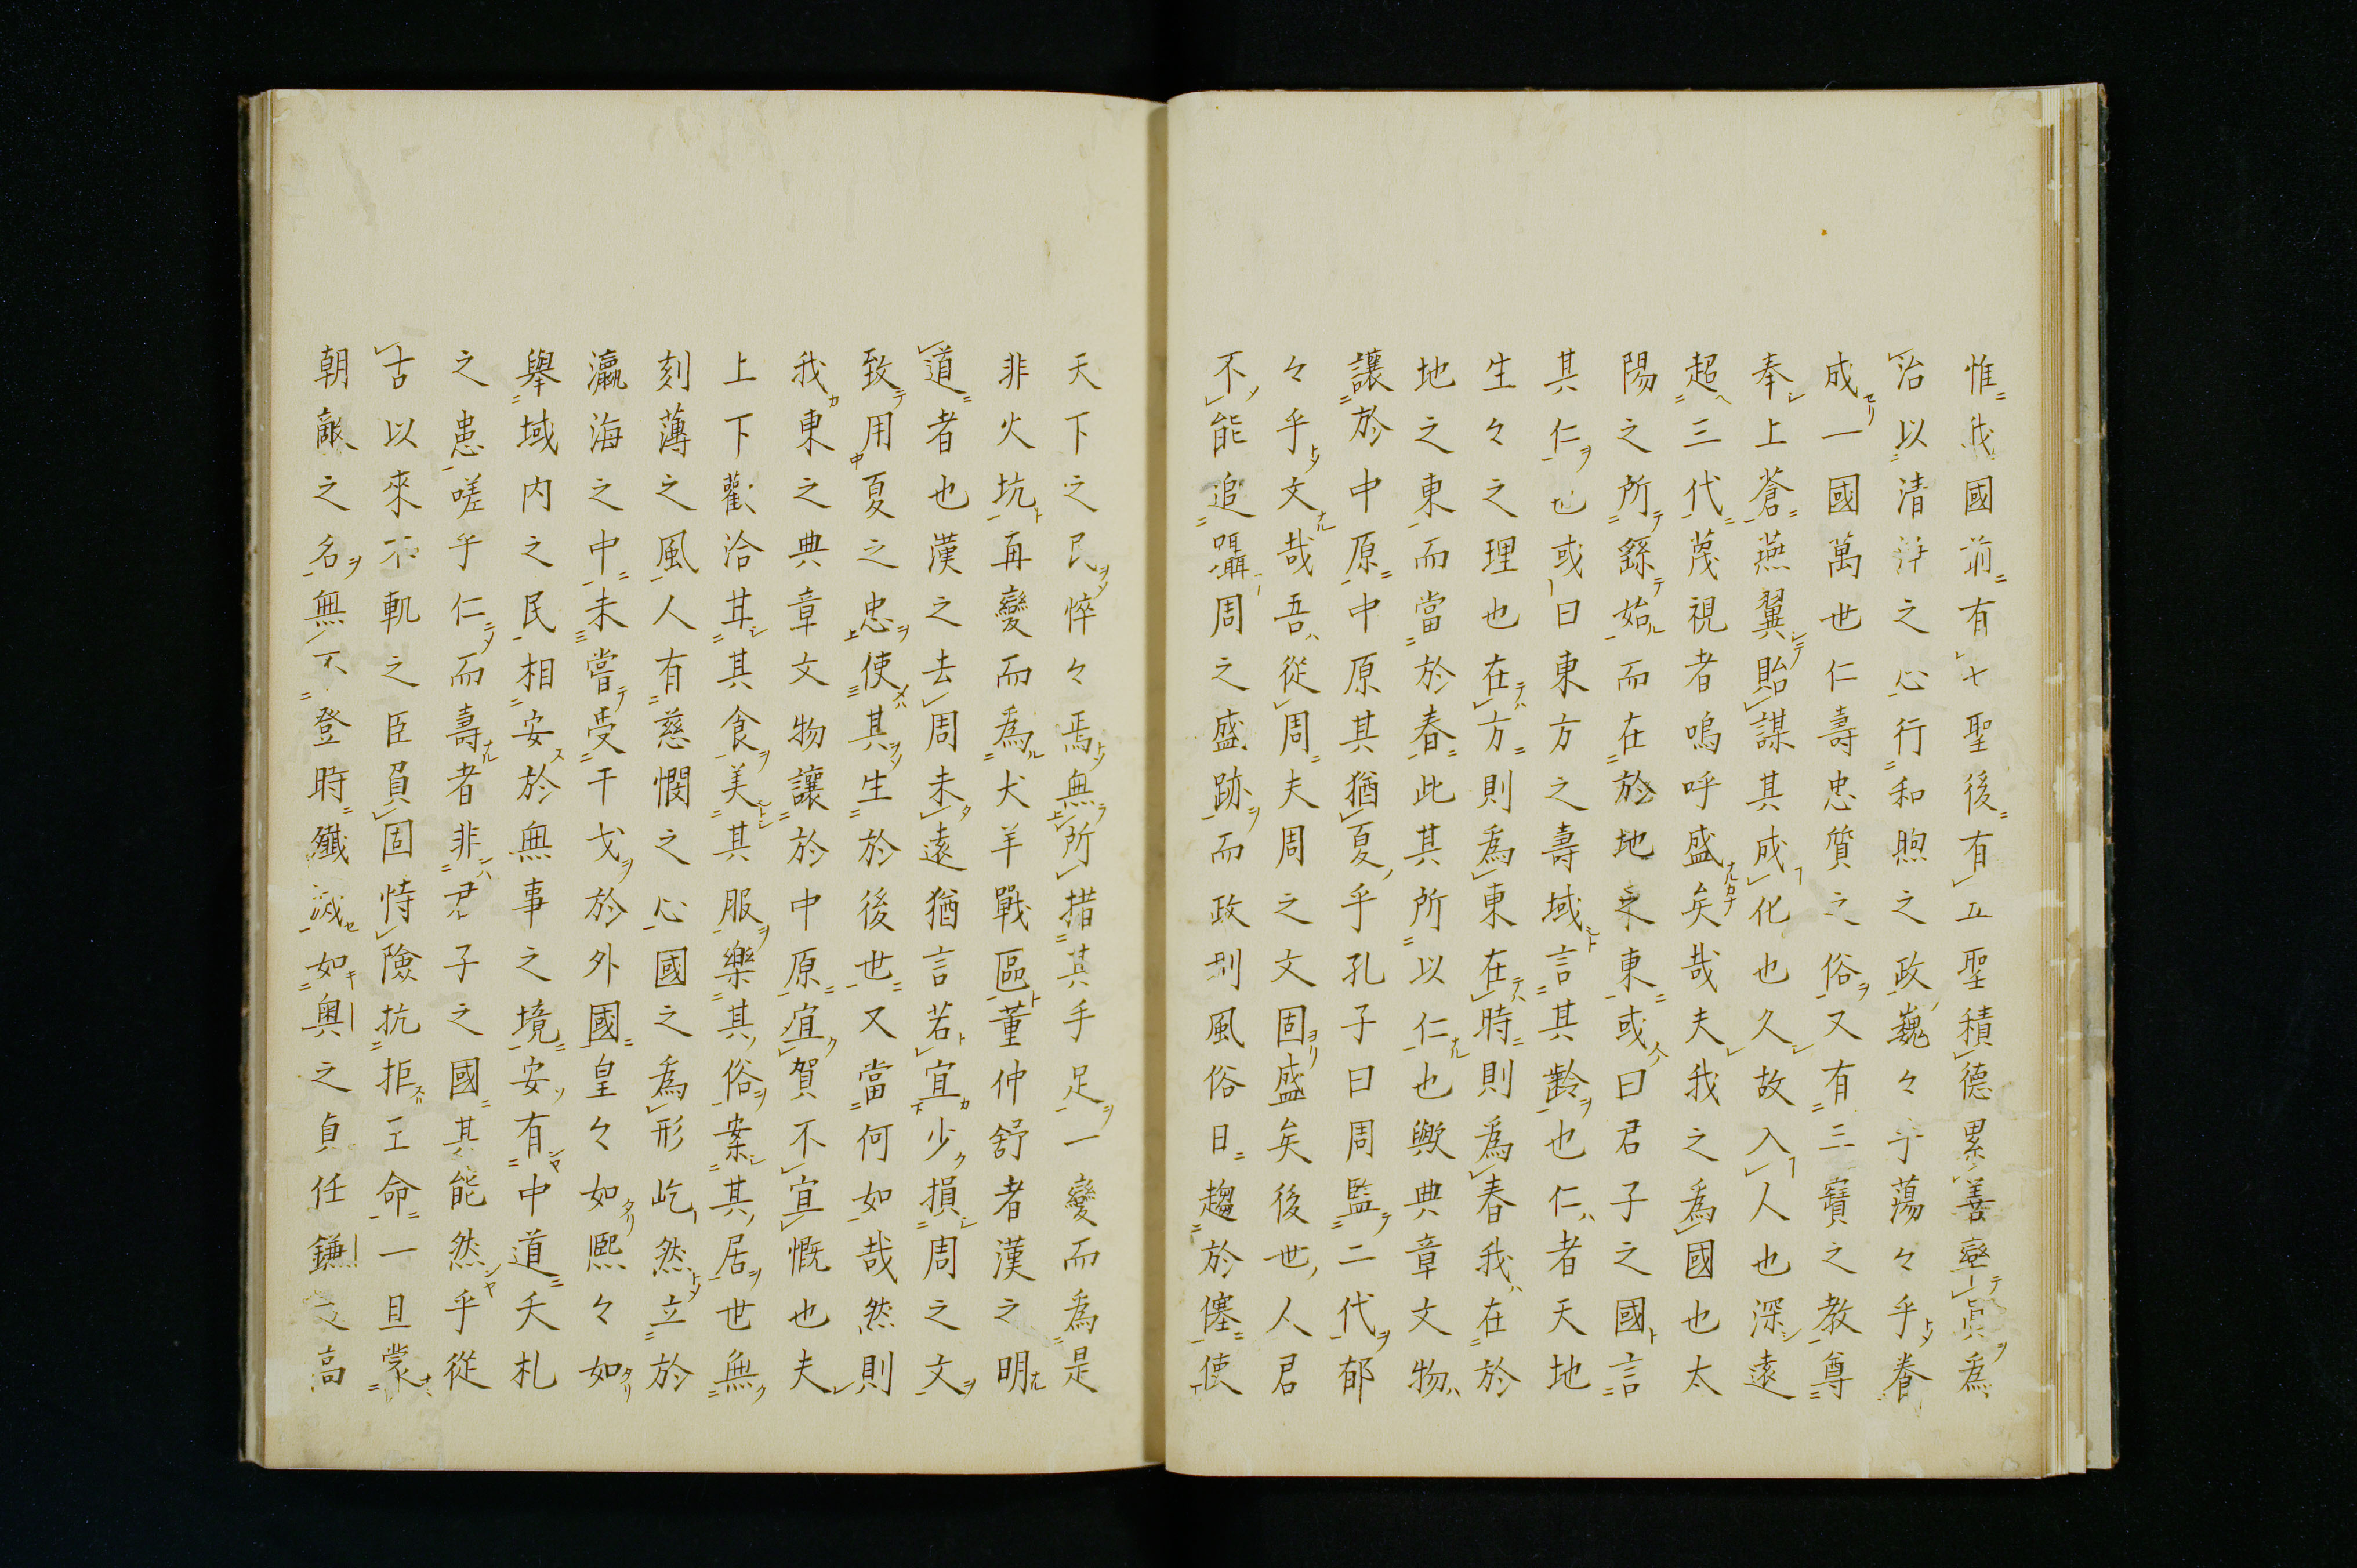 惟我國前有七聖後有五聖積德累善孌眞爲
治以清浄之心行和煦之政巍々乎蕩々乎養
成一國萬世仁壽忠質之俗又有三寶之教尊
奉上蒼燕翼貽謀其成化也久故入人也深遠
超三代蔑視者嗚呼盛矣哉夫我之爲國也太
陽之所繇始而在於地釆東或曰君子之國言
其仁也或曰東方之壽域言其齡也仁者天地
生々之理也在方則爲東在時則爲春我在於
地之東而當於春此其所以仁也歟典章文物
讓於中原中原其猶夏乎孔子曰周監二代郁
々乎文哉吾從周夫周之文固盛矣後世人君
不能追躡周之盛跡而政刑風俗日趨於僿使
天下之民悴々焉無所措其手足一變而爲是
非火坑再變而爲犬羊戰區董仲舒者漢之明
道者也漢之去周未遠猶言若宜少損周之文
致用夏之忠使其生於後世又當何如哉然則
我東之典章文物讓於中原宜賀不宜慨也夫
上下歡洽甘其食美其服樂其俗案其居世無
刻薄之風人有慈憫之心國之爲形屹然立於
瀛海之中未嘗受干戈於外國皇々如熙々如
舉域内之民相安於無事之境安有中道夭札
之患嗟乎仁而壽者非君子之國其能然乎從
古以來不軌之臣負固恃險抗拒王命一旦裳
朝敵之名無不登時殲滅如奥之貞任鎌
高